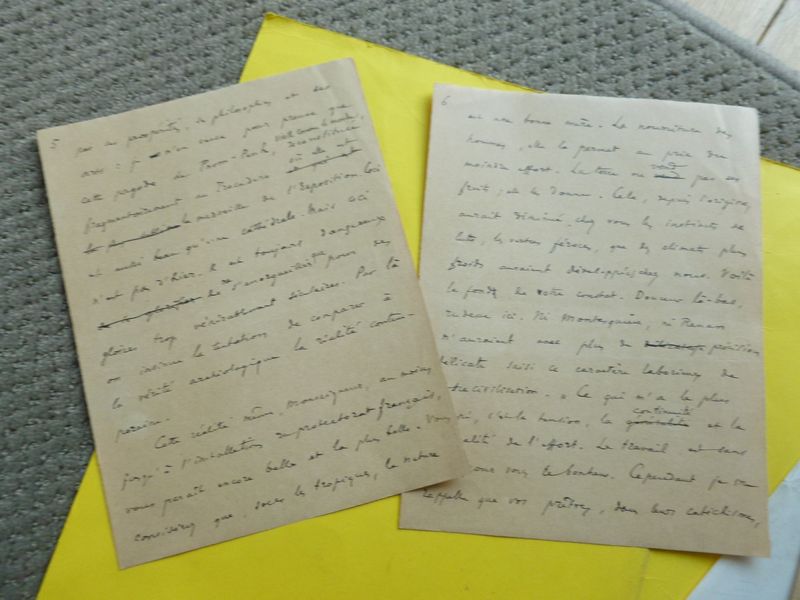 5
pas de prospérité, de philosophes et des
arts : je n'en veux pour preuve que
cette pagode de Pnom-Penh,
fragmentairement au Trocadéro
la merveille de l'Exposition. Ceci
est aussi beau qu'une cathédrale. Mais ceci
n'est pas d'hier. Il est toujours dangereux
de s'enorgueillir pour des
gloires trop vénérablement séculaires. Par là
on insinue la tentation de comparer à
la vérité archéologique la réalité contem-
poraine.
Cette réalité même, Monseigneur, au moins
jusqu'à l'installation du protectorat français,
vous paraît encore belle et la plus belle. Vous
considérez que, sous les tropiques, la nature
6
est une bonne mère. La nourriture des
hommes, elle la permet au prix du
moindre effort. La terre ne vend pas ses
fruits ; elle les donne. Cela, depuis l'origine,
aurait diminué chez vous les instincts de
lutte, les vertus féroces, que les climats plus
froids auraient développés chez nous. Voilà
le fond de votre constat. Douceur là-bas,
rudesse ici. Ni Montesquieu, ni Renan
n'auraient avec plus de précision
délicate saisi ce caractère laborieux de
civilisation. « Ce qui m'a le plus
c'est la tension, la continuité et la
de l'effort. Le travail est sans
vous sans bonheur. Cependant je me
rappelle que vos prêtres, dans leurs catéchismes,